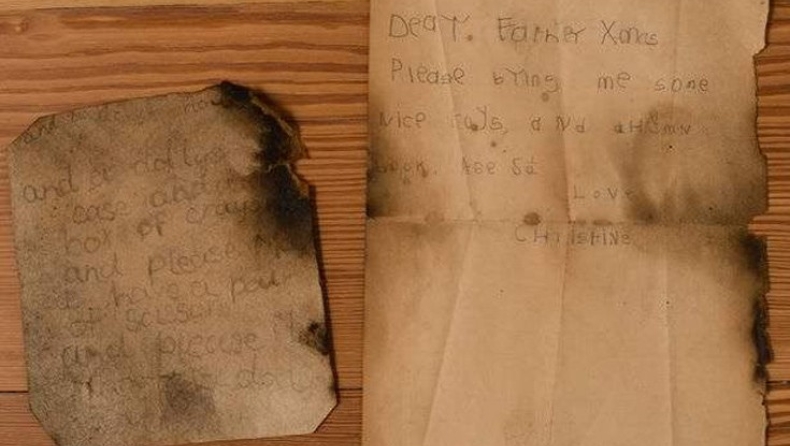 and a dollys
case and
box of crayo
and please M
have a pair
of scissor
and please M
Dear. Father Xmas
Please bring me some
Nice toys, a Nd
book. Age 5½
Love
Christine